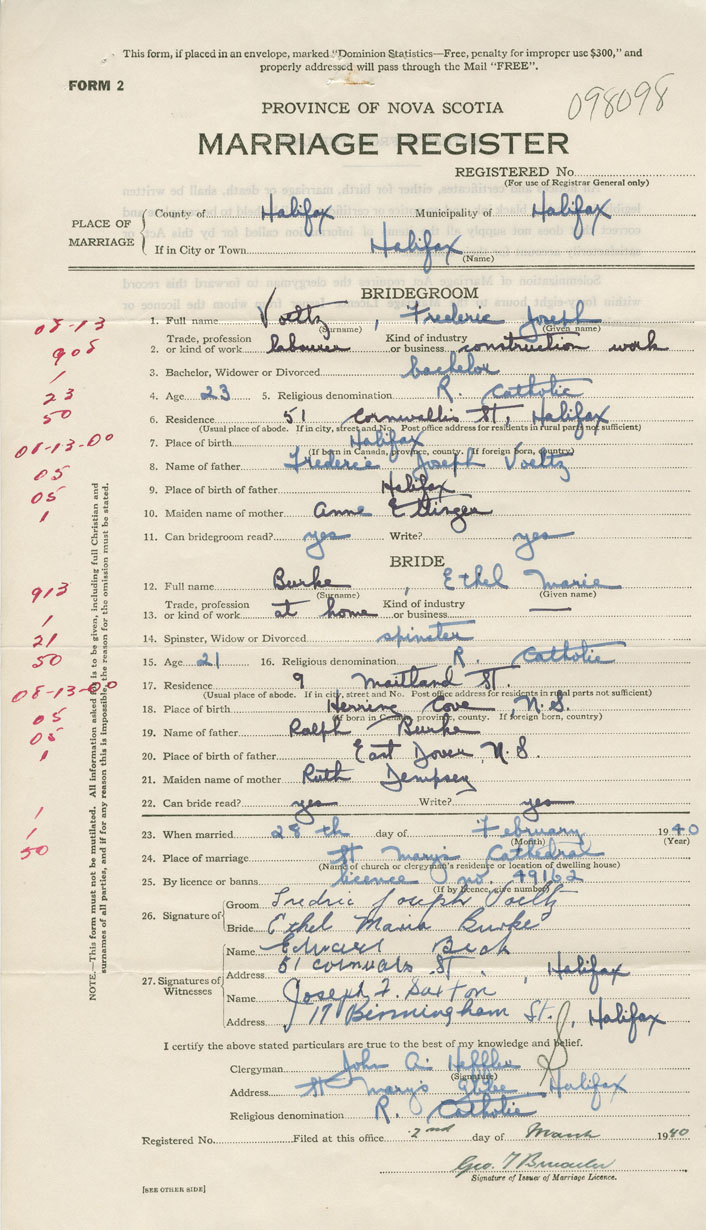 This form, if placed in an envelope, marked "Dominion Statistics—Free, penalty for improper use $300," and
properly addressed will pass through the Mail "FREE".
FORM 2
098098
PROVINCE OF NOVA SCOTIA
MARRIAGE REGISTER
REGISTERED No.
(For use of Registrar General only)
PLACE OF MARRIAGE
County of Halifax Municipality of Halifax
If in City or Town Halifax
(Name)
BRIDEGROOM
08-13
1. Full name Voeltz, Frederic Joseph
(Surname) (Given name)
908
2. Trade, profession or kind of work labourer Kind of industry or business construction work
1
3. Bachelor, Widower or Divorced bachelor
23
4. Age 23 5. Religious denomination R. Catholic
50
6. Residence 51 Cornwallis St, Halifax
(Usual place of abode. If in city, street and No. Post office address for residents in rural parts not sufficient)
08-13-00
7. Place of birth Halifax
(If born in Canada, province, county. If foreign born, country)
05
8. Name of father Frederic Joseph Voeltz
05
9. Place of birth of father Halifax
1
10. Maiden name of mother Anne Ettinger
11. Can bridegroom read? yes Write? yes
BRIDE
913
12. Full name Burke, Ethel Marie
(Surname) (Given name)
1
13. Trade, profession or kind of work at home Kind of industry or business —
21
14. Spinster, Widow or Divorced spinster
50
15. Age 21 16. Religious denomination R. Catholic
08-13-00
17. Residence 9 Maitland St.
(Usual place of abode. If in city, street and No. Post office address for residents in rural parts not sufficient)
05
18. Place of birth Herring Cove, N.S.
(If born in Canada, province, county. If foreign born, country)
05
19. Name of father Ralph Burke
1
20. Place of birth of father East Dover, N.S.
21. Maiden name of mother Ruth Dempsey
22. Can bride read? yes Write? yes
1
23. When married 28th day of February 1940
(Month) (Year)
1
50
24. Place of marriage St Mary's Cathedral
(Name of church or clergyman's residence or location of dwelling house)
25. By licence or banns licence no. 49162
(If by licence, give number)
26. Signature of
Groom Fredric Joseph Voeltz
Bride Ethel Maria Burke
27. Signatures of Witnesses
Name Edward
Address 51 St., Halifax
Name Joseph F. Saxton
Address 17 Binmingham St., Halifax
I certify the above stated particulars are true to the best of my knowledge and belief.
Clergyman John A.
(Signature)
Address St Mary's Glebe Halifax
Religious denomination R. Catholic
Registered No. Filed at this office 2nd day of March 1940
Geo.
Signature of Issuer of Marriage Licence.
[SEE OTHER SIDE]
NOTE.—This form must not be mutilated. All information asked for is to be given, including full Christian and
surnames of all parties, and if for any reason this is impossible, the reason for the omission must be stated.